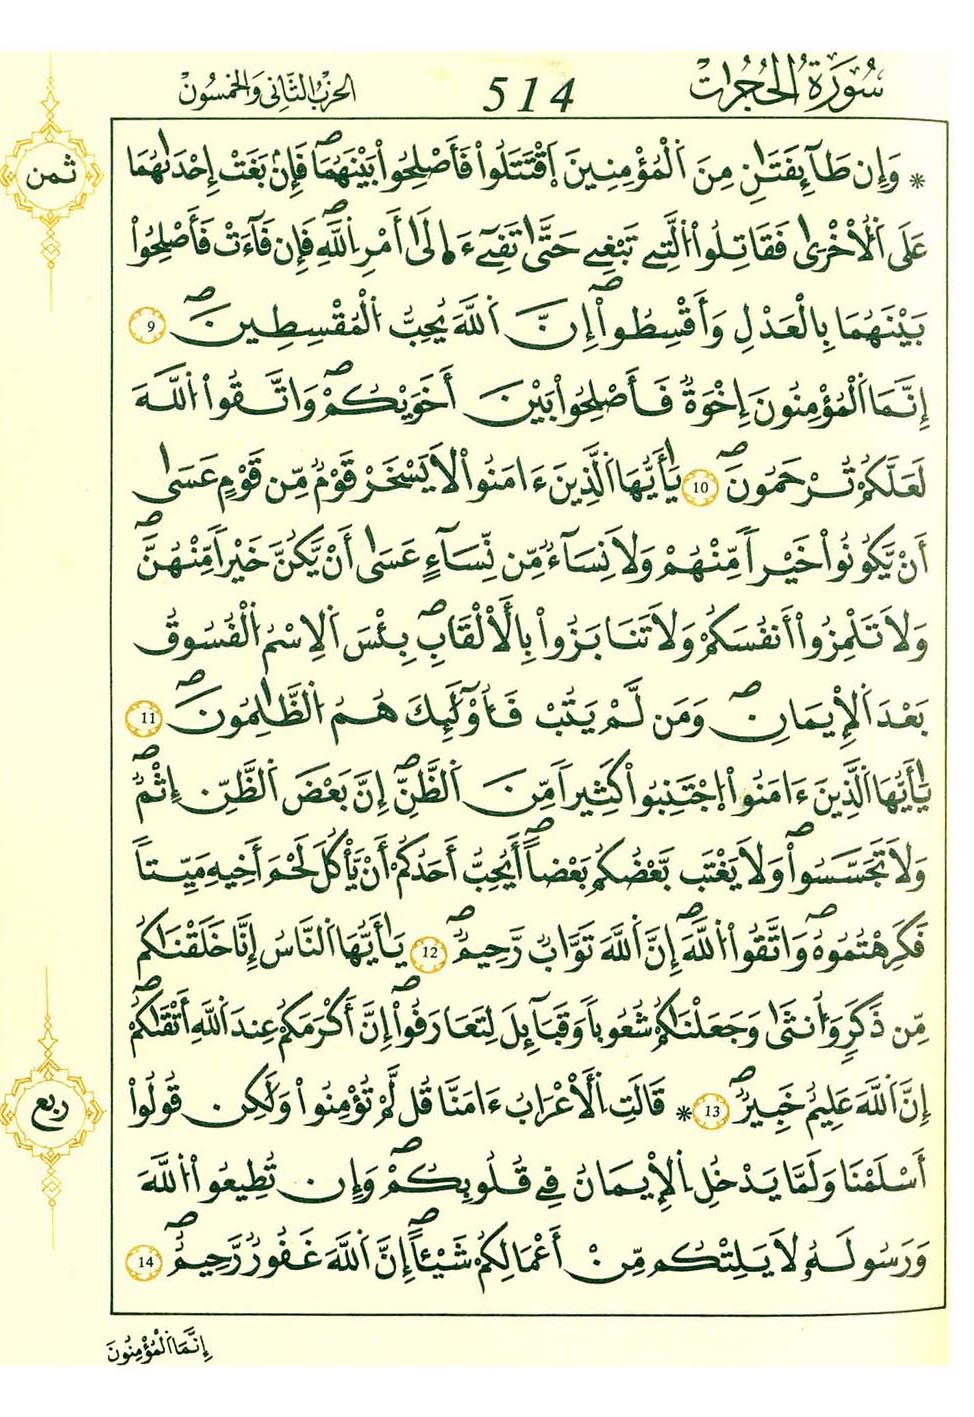 سُورَةُ الْحُجُرَاتِ 514 الحزب الثَّانِي وَالْخَمْسُونَ
ثمن
* وَإِن طَآئِفَتَٰنِ مِنَ اَ۬لْمُؤْمِنِينَ اَ۪قْتَتَلُواْ فَأَصْلِحُواْ بَيْنَهُمَاۖ فَإِنۢ بَغَتْ إِحْدَىٰهُمَا
عَلَى اَ۬لُاخْر۪ىٰ فَقَٰتِلُواْ اُ۬لتِے تَبْغِے حَتَّىٰ تَفِےٓءَ الَىٰٓ أَمْرِ اِ۬للَّهِۖ فَإِن فَآءَتْ فَأَصْلِحُواْ
بَيْنَهُمَا بِالْعَدْلِ وَأَقْسِطُوٓاْۖ إِنَّ اَ۬للَّهَ يُحِبُّ اُ۬لْمُقْسِطِينَۖ 9
إِنَّمَا اَ۬لْمُؤْمِنُونَ إِخْوَةٞ فَأَصْلِحُواْ بَيْنَ أَخَوَيْكُمْۖ وَاتَّقُواْ اُ۬للَّهَ
لَعَلَّكُمْ تُرْحَمُونَۖ 10 يَٰٓأَيُّهَا اَ۬لذِينَ ءَامَنُواْ لَا يَسْخَرْ قَوْمٞ مِّن قَوْمٍ عَسَىٰٓ
أَنْ يَّكُونُواْ خَيْراٗ مِّنْهُمْ وَلَا نِسَآءٞ مِّن نِّسَآءٍ عَسَىٰٓ أَنْ يَّكُنَّ خَيْراٗ مِّنْهُنَّۖ
وَلَا تَلْمِزُوٓاْ أَنفُسَكُمْ وَلَا تَنَابَزُواْ بِالَالْقَٰبِۖ بِئْسَ اَ۬لِاسْمُ اُ۬لْفُسُوقُ
بَعْدَ اَ۬لِايمَٰنِۖ وَمَن لَّمْ يَتُبْ فَأُوْلَٰٓئِكَ هُمُ اُ۬لظَّٰلِمُونَۖ 11
يَٰٓأَيُّهَا اَ۬لذِينَ ءَامَنُواْ اُ۪جْتَنِبُواْ كَثِيراٗ مِّنَ اَ۬لظَّنِّۖ إِنَّ بَعْضَ اَ۬لظَّنِّ إِثْمٞۖ
وَلَا تَجَسَّسُواْۖ وَلَا يَغْتَب بَّعْضُكُم بَعْضاًۖ أَيُحِبُّ أَحَدُكُمْ أَنْ يَّأْكُلَ لَحْمَ أَخِيهِ مَيِّتاٗ
فَكَرِهْتُمُوهُۖ وَاتَّقُواْ اُ۬للَّهَۖ إِنَّ اَ۬للَّهَ تَوَّابٞ رَّحِيمٞۖ 12 يَٰٓأَيُّهَا اَ۬لنَّاسُ إِنَّا خَلَقْنَٰكُم
مِّن ذَكَرٖ وَأُنثَىٰ وَجَعَلْنَٰكُمْ شُعُوباٗ وَقَبَآئِلَ لِتَعَارَفُوٓاْۖ إِنَّ أَكْرَمَكُمْ عِندَ اَ۬للَّهِ أَتْقَىٰكُمُۥٓۖ
إِنَّ اَ۬للَّهَ عَلِيمٌ خَبِيرٞۖ 13 * قَالَتِ اِ۬لَاعْرَابُ ءَامَنَّا قُل لَّمْ تُؤْمِنُواْ وَلَٰكِن قُولُوٓاْ
ربع
أَسْلَمْنَا وَلَمَّا يَدْخُلِ اِ۬لِايمَٰنُ فِے قُلُوبِكُمْۖ وَإِن تُطِيعُواْ اُ۬للَّهَ
وَرَسُولَهُۥ لَا يَلِتْكُم مِّنَ اَعْمَٰلِكُمْ شَيْـٔاًۖ إِنَّ اَ۬للَّهَ غَفُورٞ رَّحِيمٌۖ 14
إِنَّمَا اَ۬لْمُؤْمِنُونَ